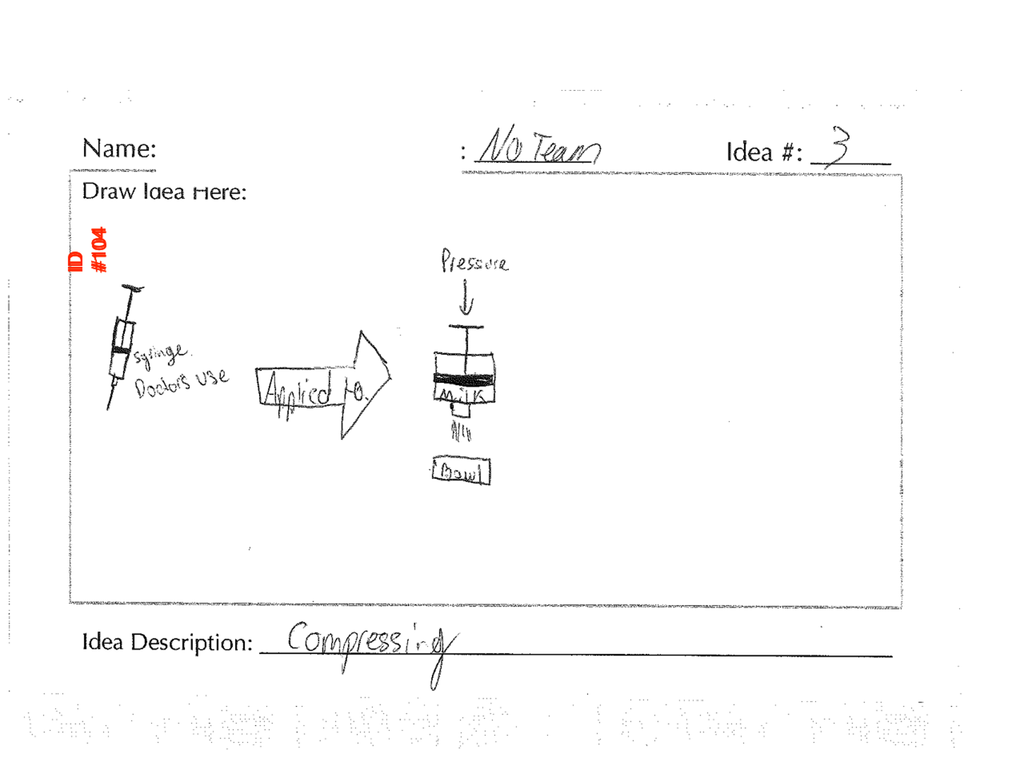 Name:
: No Team
Idea #: 3
Draw Idea Here:
ID
#104
Pressure
syringe.
Doctors use
Applied to.
Milk
Bowl
Idea Description: Compressing